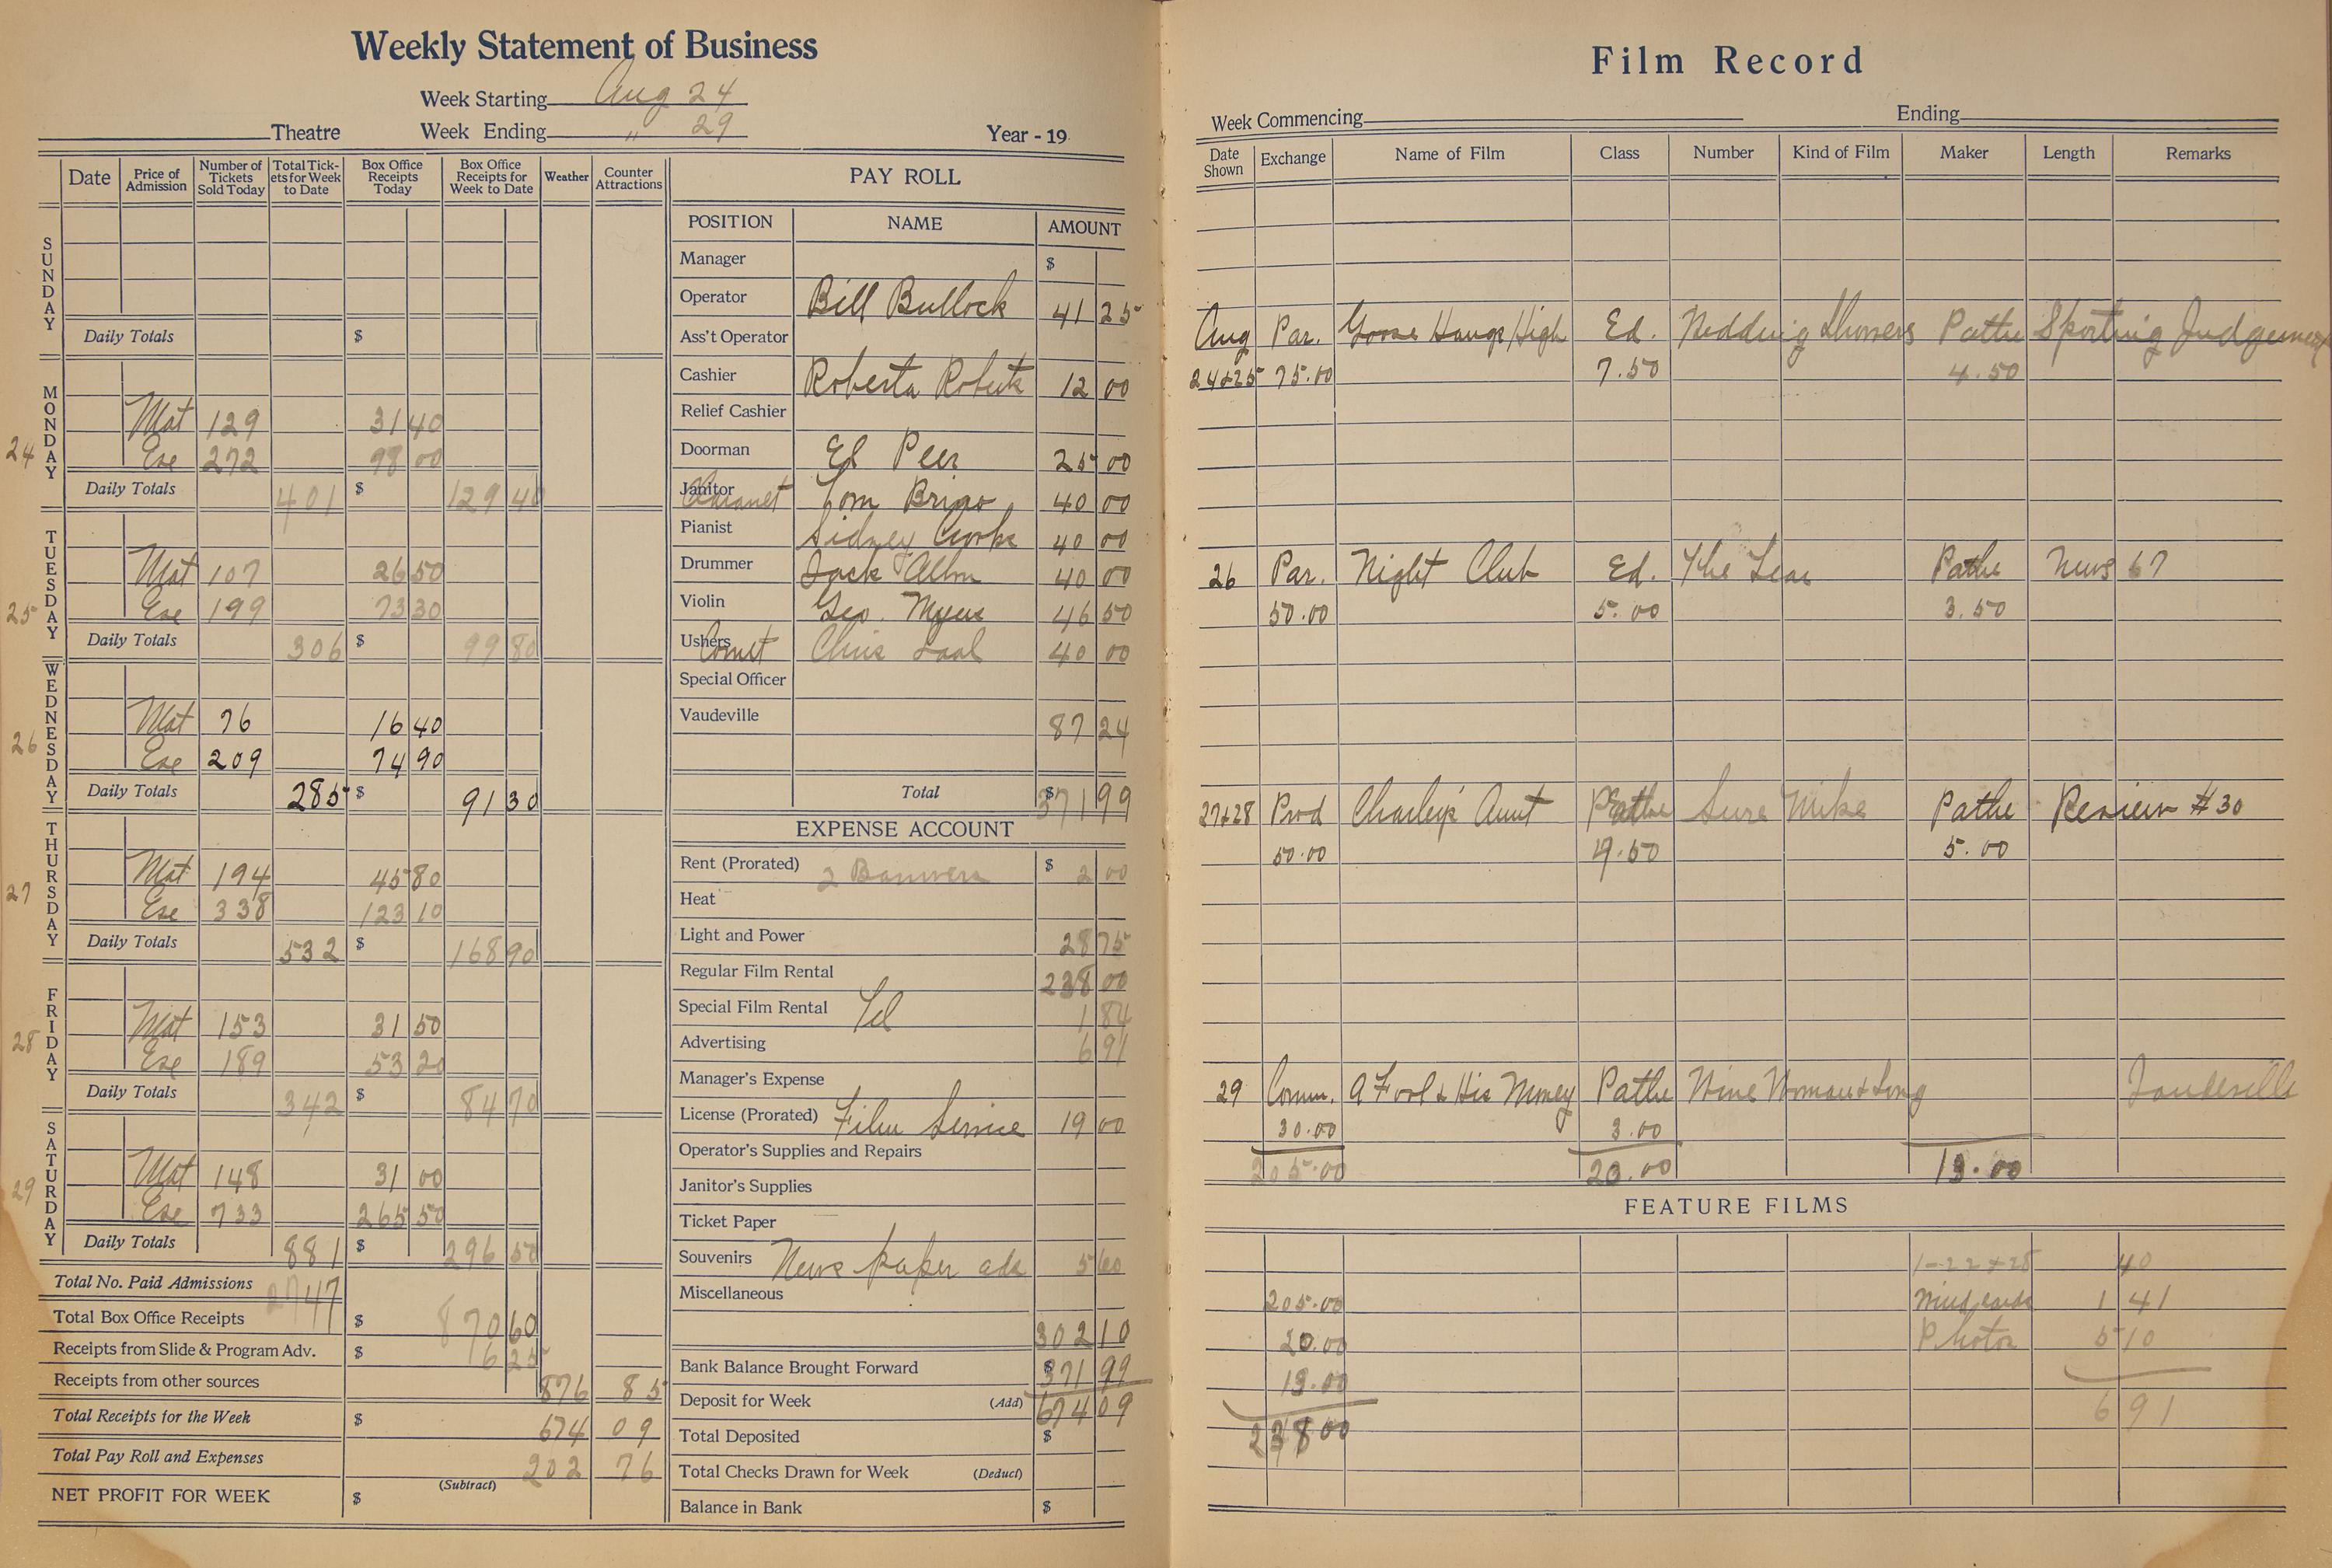 Weekly Statement of Business
Week Starting Aug 24
Theatre Week Ending " 29 Year - 19
Date Price of Admission Number of Tickets Sold Today Total Tickets for Week to Date Box Office Receipts Today Box Office Receipts for Week to Date Weather Counter Attractions
SUNDAY
Daily Totals $
MONDAY 24
Mat 129 31 40
Eve 272 98 00
Daily Totals 401 $ 129 40
TUESDAY 25
Mat 107 26 50
Eve 199 73 30
Daily Totals 306 $ 99 80
WEDNESDAY 26
Mat 76 16 40
Eve 209 74 90
Daily Totals 285 $ 91 30
THURSDAY 27
Mat 194 45 80
Eve 338 123 10
Daily Totals 532 $ 168 90
FRIDAY 28
Mat 153 31 50
Eve 189 53 20
Daily Totals 342 $ 84 70
SATURDAY 29
Mat 148 31 00
Eve 733 265 50
Daily Totals 881 $ 296 50
Total No. Paid Admissions 2747
Total Box Office Receipts $ 870 60
Receipts from Slide & Program Adv. $ 6 25
Receipts from other sources 876 85
Total Receipts for the Week $ 674 09
Total Pay Roll and Expenses 202 76
(Subtract)
NET PROFIT FOR WEEK $
PAY ROLL
POSITION NAME AMOUNT
Manager $
Operator Bill Bullock 41 25
Ass't Operator
Cashier Roberta 12 00
Relief Cashier
Doorman Ed Peer 25 00
Janitor Tom 40 00
Pianist Sidney 40 00
Drummer Jack 40 00
Violin Geo. Myers 46 50
Ushers Cornet Chris 40 00
Special Officer
Vaudeville 87 24
Total $ 371 99
EXPENSE ACCOUNT
Rent (Prorated) 2 Banners $ 2 00
Heat
Light and Power 28 75
Regular Film Rental 238 00
Special Film Rental Tel 1 84
Advertising 6 91
Manager's Expense
License (Prorated) Film Service 19 00
Operator's Supplies and Repairs
Janitor's Supplies
Ticket Paper
Souvenirs News paper ads 5 60
Miscellaneous
302 10
Bank Balance Brought Forward $ 371 99
Deposit for Week (Add) 674 09
Total Deposited $
Total Checks Drawn for Week (Deduct)
Balance in Bank $
Film Record
Week Commencing Ending
Date Shown Exchange Name of Film Class Number Kind of Film Maker Length Remarks
Aug Par. Goose Hangs High Ed. Wedding Showers Pathe Sporting Judgement
24+25 75.00 7.50 4.50
26 Par. Night Club Ed. The Pathe News 67
50.00 5.00 3.50
27+28 Prod Charley's Aunt Pathe Sure Mike Pathe Review #30
50.00 4.50 5.00
29 Comm. A Fool & His Money Pathe Wine Woman & Song Vaudeville
30.00 3.00
205.00 20.00 13.00
FEATURE FILMS
1-22x28 40
205.00 1 41
20.00 Photos 5 10
13.00
6 91
238 00